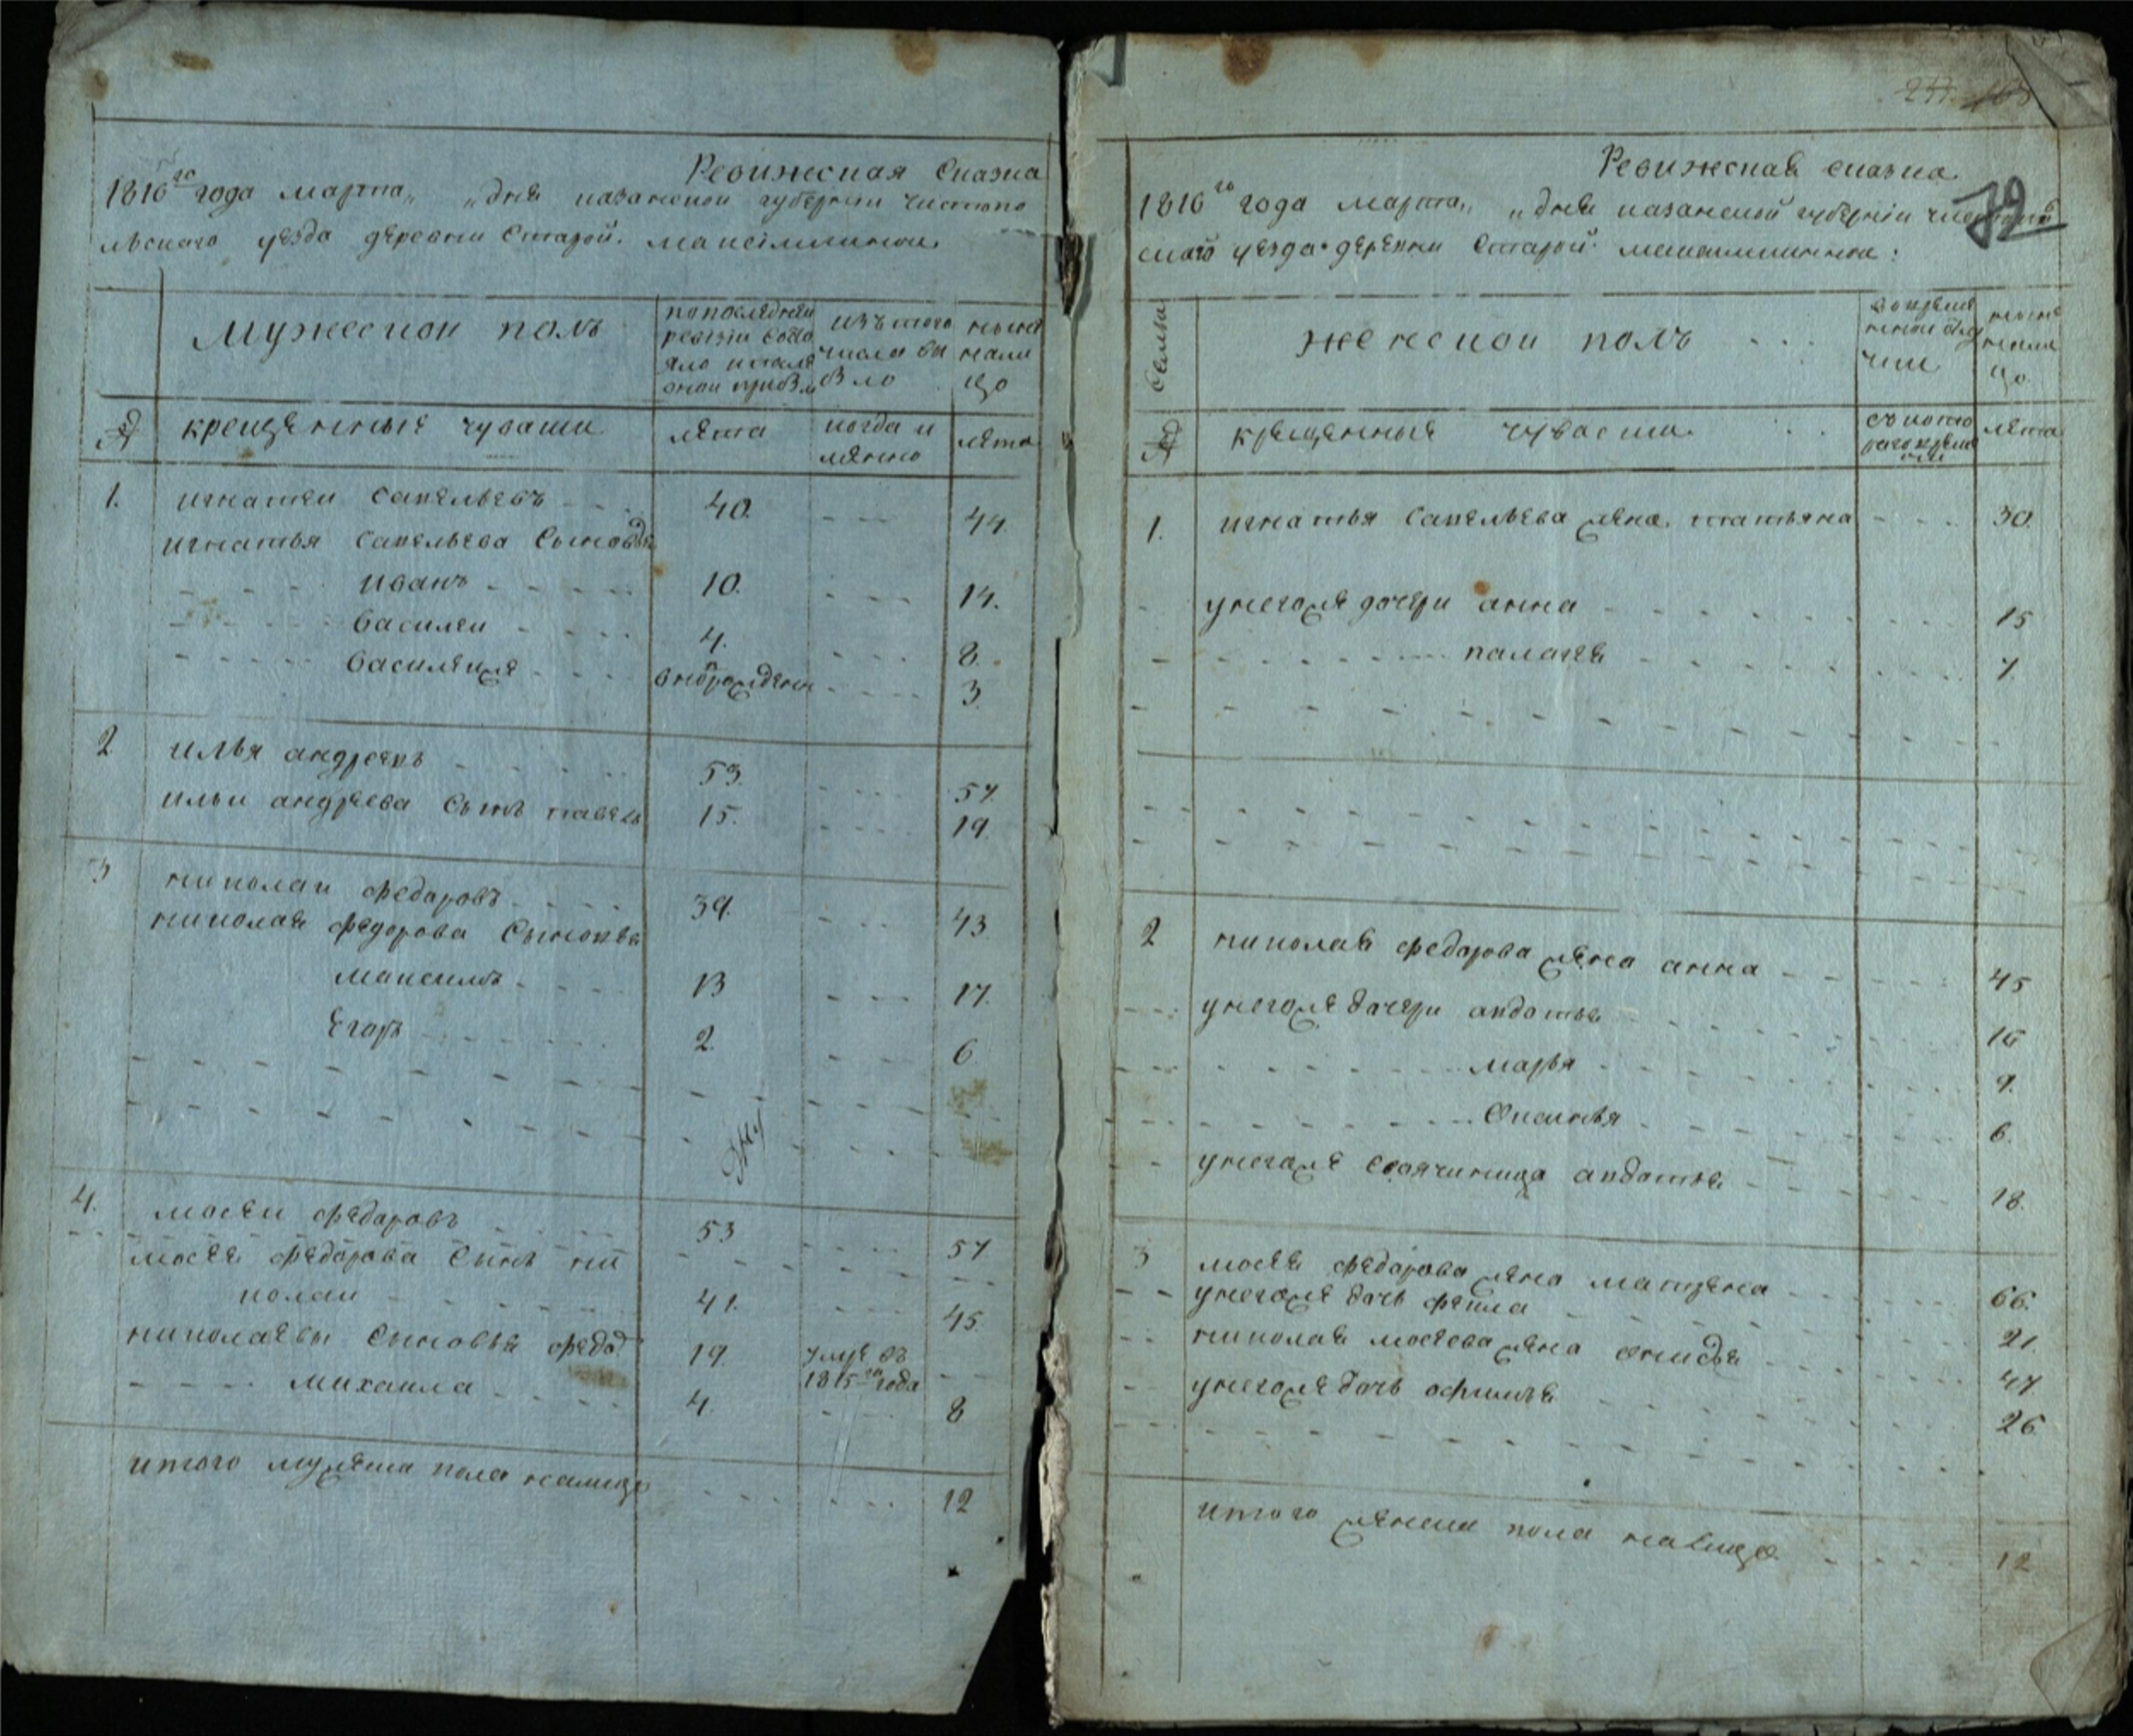 Ревижская Сказка
1816го года марта „ „ дня казанской губернии чистопо
льского уезда деревни Старой максимкиной
Мужескои полъ
попоследней ревизiи состояло ипосле онои прибыло
изътого числа выбыло
ныне налицо
крещенныя чуваши
лета
когда и мянно
лета
1. игнатеи савельевъ 40. 44.
игнатья савельева Сыновья
иванъ 10. 14.
василеи 4. 8.
василеиже вноврожденъ 3
2 илья андреевъ 53. 57.
ильи андреева Сынъ павелъ 15. 19.
3 николаи федаровъ 39. 43
николая федорова Сыновья
максимъ 13 17.
Егоръ 2. 6
4. мосеи федаровъ 53 57
мосея федарова Сынъ ни
колаи 41. 45.
николаевы Сыновья федоръ 19. умре въ
1815го года
михаила 4. 8
итого мужеска пола налицо 12
79
Ревижская сказка
1816го года марта „ „ дня казанской губернiи чистополь
скаго уезда деревни Старой максимкиной:
семьи
женскои полъ
вовремяннои отлучки
ныне налицо
крещенныя чуваши
съкоторого времяни
лета
1. игнатья савельева жена татьяна 30.
унегоже дочери анна 15
палагея 7.
2 николая федарова жена анна 45
унегоже дочери авдотья 16
марья 9.
Оксинья 6.
унегоже своячиница авдотья 18.
3 мосея федарова жена матрена 66.
унегоже дочь фекла 21.
николая мосеева жена 47
унегоже дочь офимья 26.
итого женска пола налицо 12